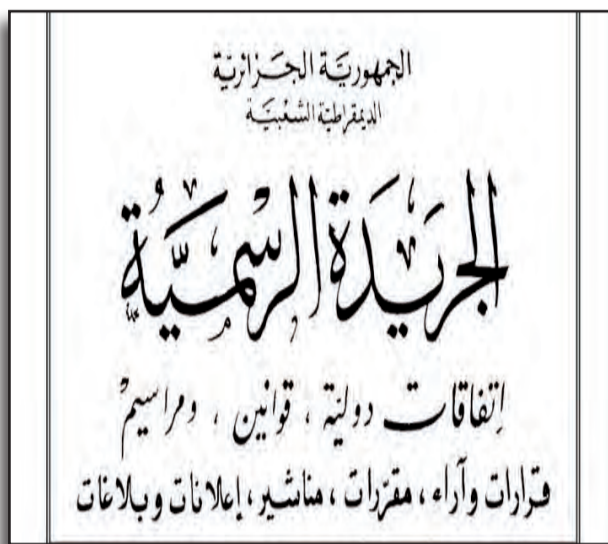 الجمهورية الجزائرية
الديمقراطية الشعبية
الجريدة الرسمية
اتفاقات دولية ، قوانين ، ومراسيم
قرارات وآراء ، مقررات ، مناشير ، إعلانات وبلاغات